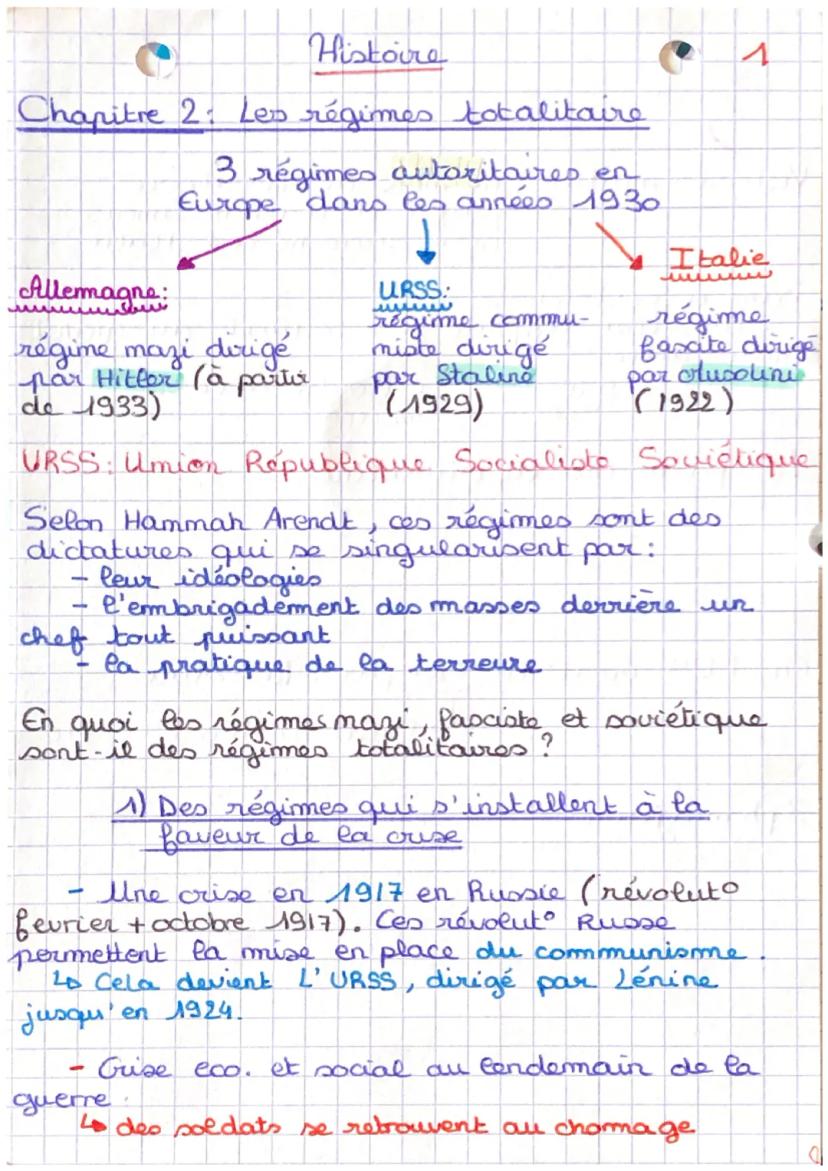 Histoire
1
Chapitre 2: Les régimes totalitaire
3 régimes autoritaires en
Europe dans les années 1930
Allemagne:
régime nazi dirigé
par Hitler (à partir
de 1933)
URSS:
régime commu-
niste dirigé
par Staline
(1929)
Italie
régime
fascite dirigé
par Musolini
(1922)
URSS: Union République Socialiste Soviétique
Selon Hannah Arendt, ces régimes sont des
dictatures qui se singularisent par:
- leur idéologies
- l'embrigadement des masses derrière un
chef tout puissant
- la pratique de la terreure
En quoi les régimes nazi, fasciste et soviétique
sont-il des régimes totalitaires ?
1) Des régimes qui s'installent à la
faveur de la crise
- Une crise en 1917 en Russie (révolut°
fevrier + octobre 1917). Ces révolut° Russe
permettent la mise en place du communisme.
↳ Cela devient L'URSS, dirigé par Lénine
jusqu'en 1924.
- Crise eco. et social au lendemain de la
guerre.
↳ des soldats se retrouvent au chomage